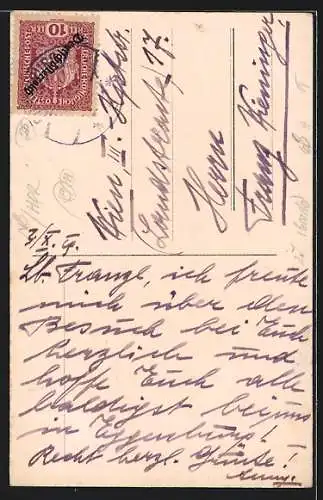 Herrn
Franz Keninger
Wien, III.
Landstrasse 17.
3/X. 19.
Lb. Franzl, ich freute
mich über den
Besuch bei Euch
herzlich und
hoffe Euch alle
baldigst bei uns
in Eggenburg!
Recht herzl. Grüsse!
10